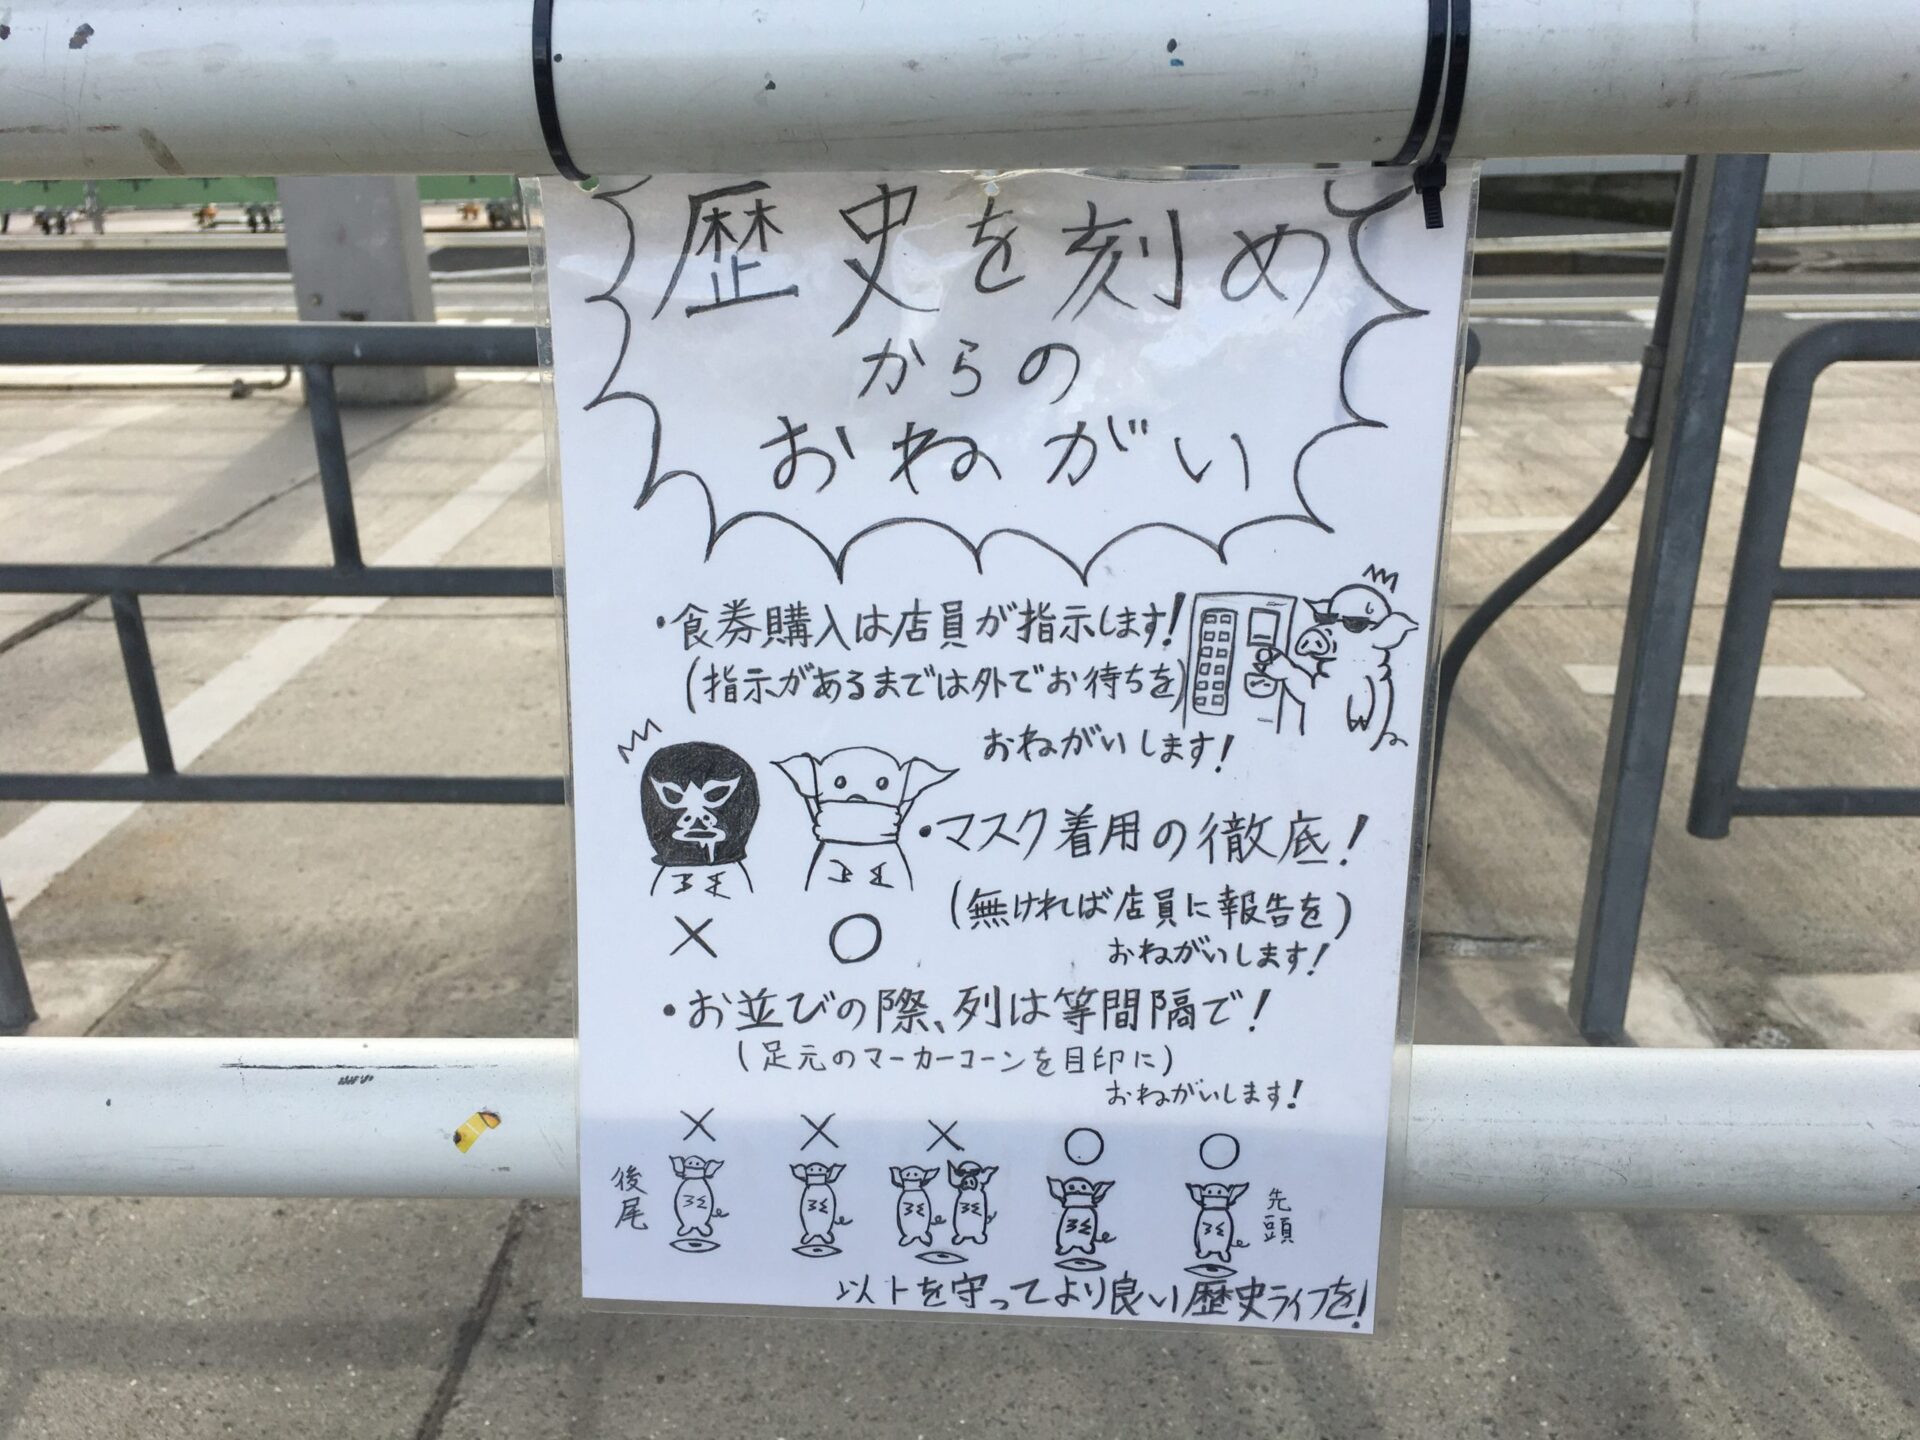 歴史を刻め
からの
おねがい
・食券購入は店員が指示します!
(指示があるまでは外でお待ちを)
おねがいします!
・マスク着用の徹底!
(無ければ店員に報告を)
おねがいします!
・お並びの際、列は等間隔で!
(足元のマーカーコーンを目印に)
おねがいします!
×
○
× × × ○ ○
後尾
先頭
以上を守ってより良い歴史ライフを!